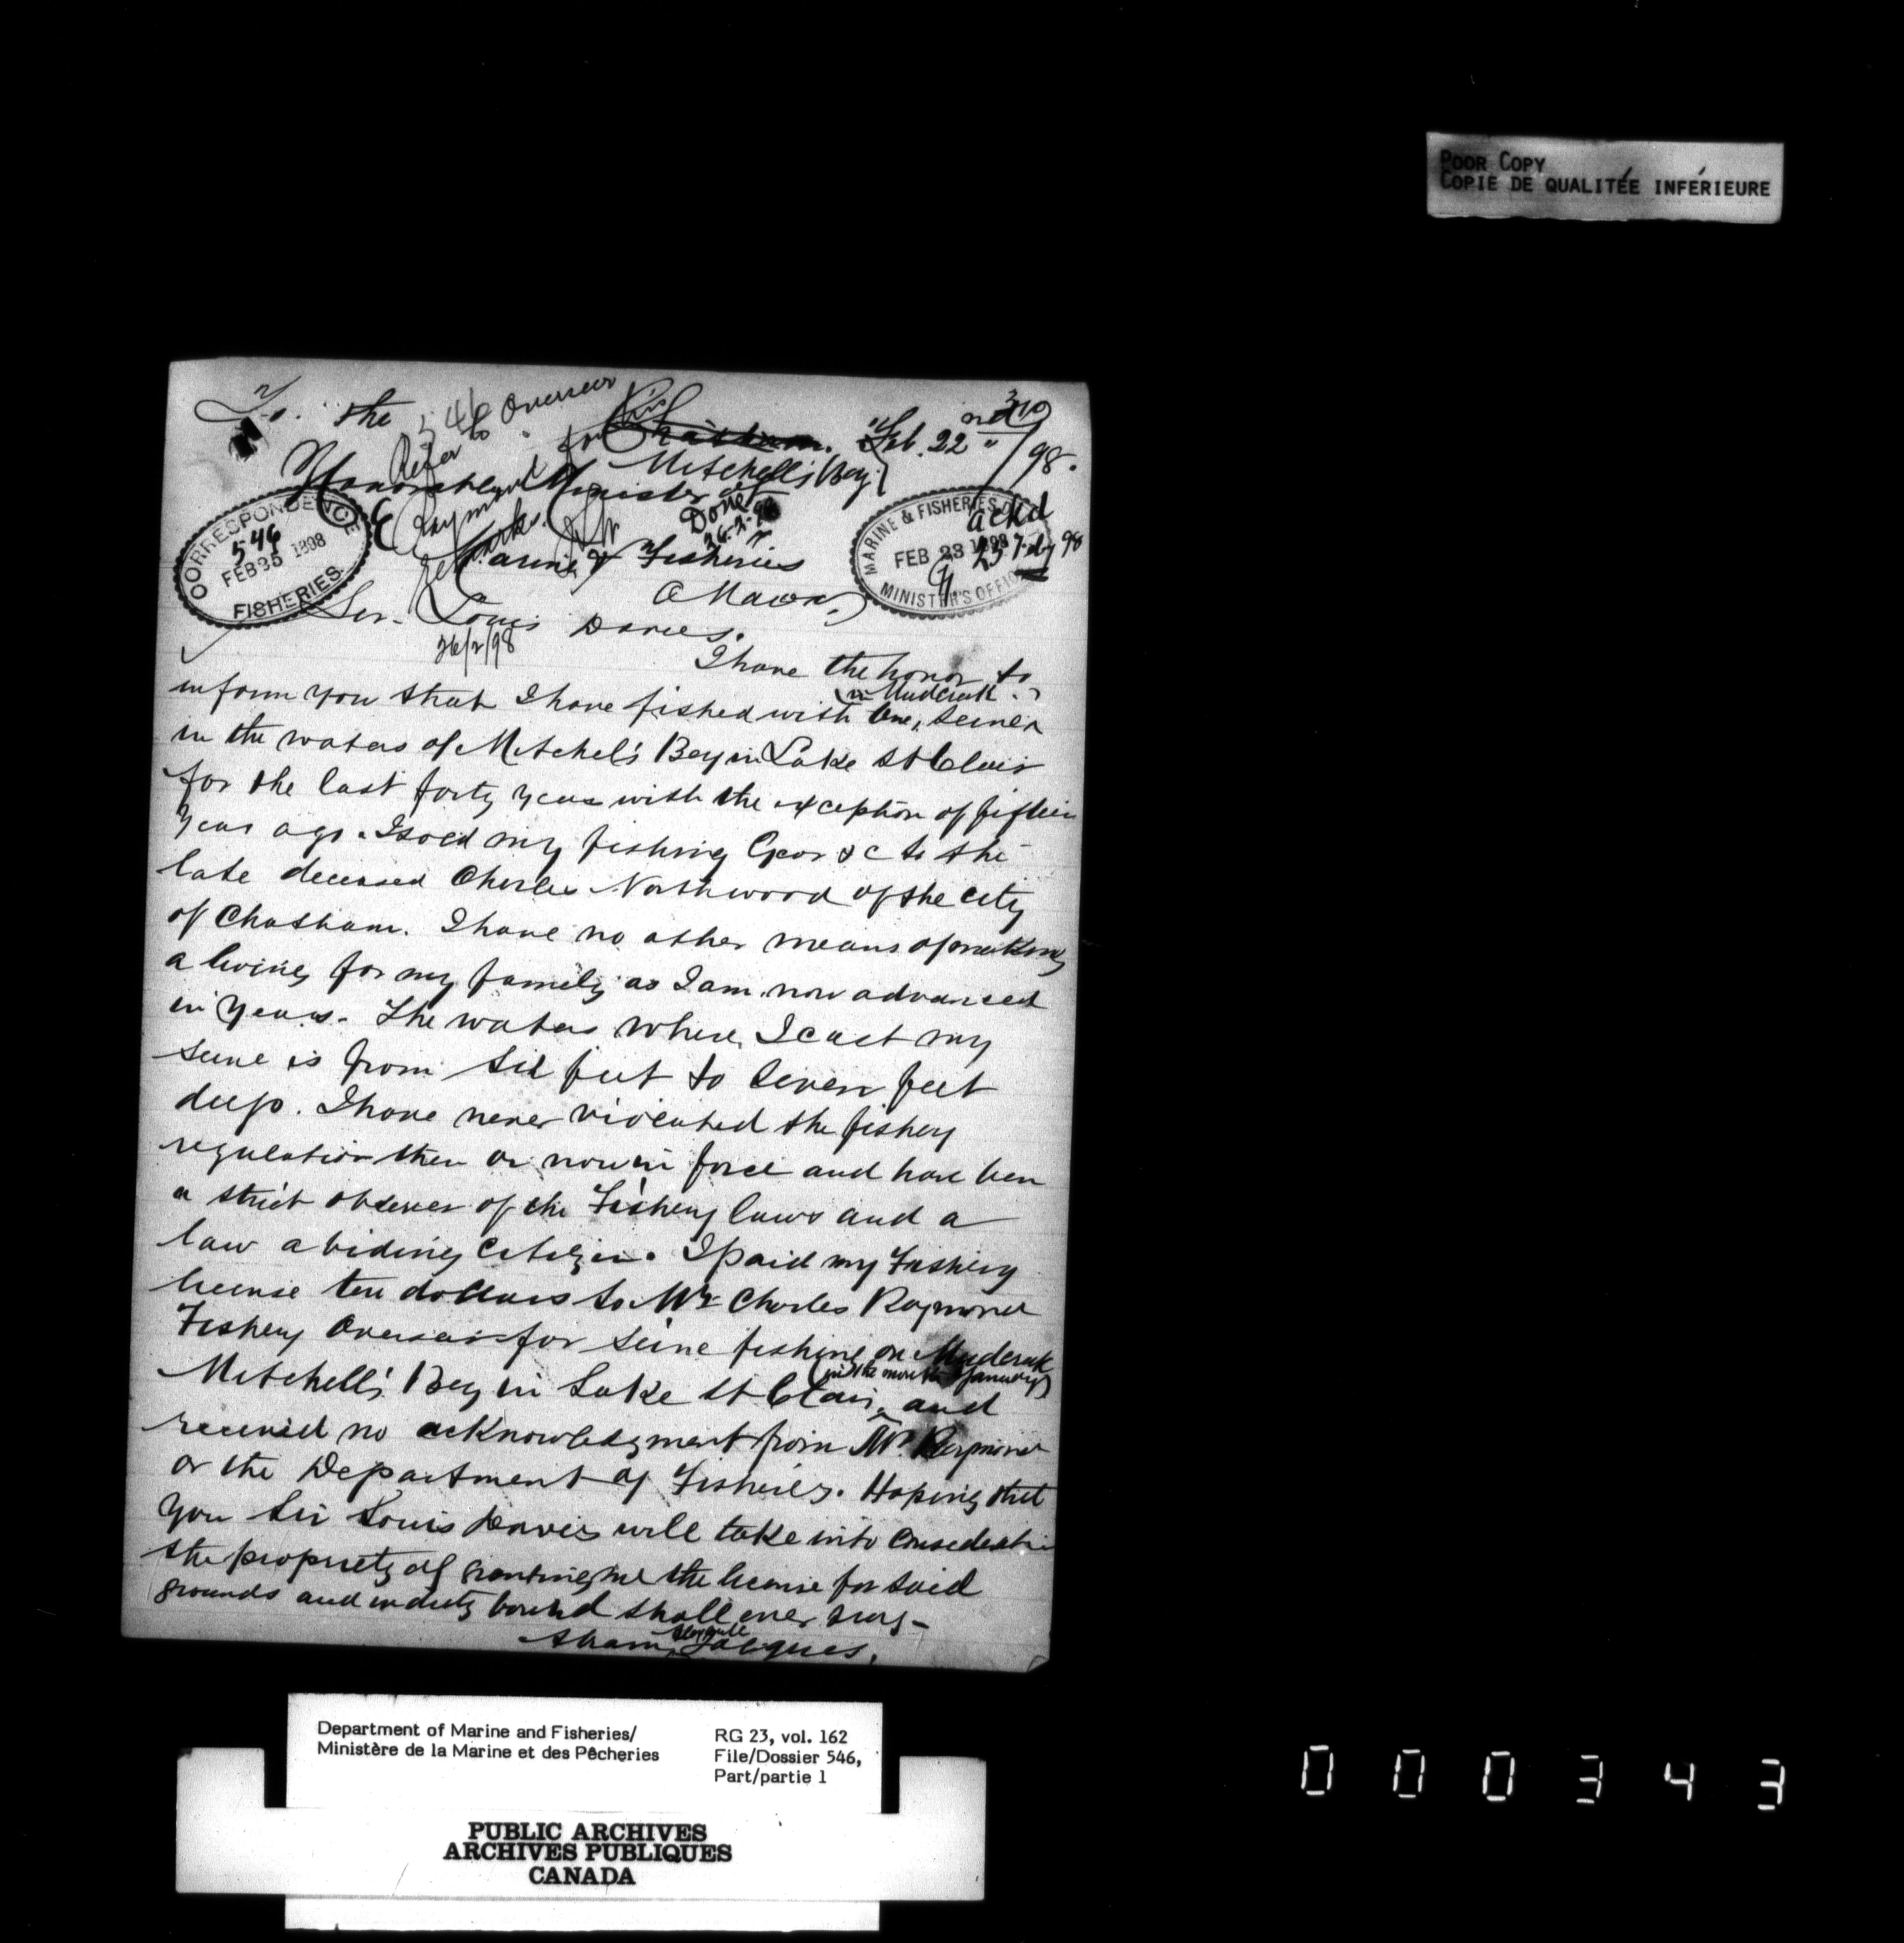 POOR COPY
COPIE DE QUALITÉE INFÉRIEURE
To. the
546
Refer to Overseer
Raymond for his
remarks.
26/2/98
Chatham. Feb. 22nd / 98.
Mitchell's Bay
Honorable Minister of
Marine & Fisheries
Ottawa
Done
26-2-98
CORRESPONDENCE
546
FEB 25 1898
FISHERIES.
MARINE & FISHERIES
FEB 23 1898
MINISTER'S OFFICE
ackd
25 98
Sir Louis Davies.
I have the honor to
inform you that I have fished with one, seine
(in Mudcreek)
in the waters of Mitchel's Bay in Lake St Clair
for the last forty years with the exception of fifteen
years ago. I sold my fishing Gear &c to the
late deceased Charles Northwood of the city
of Chatham. I have no other means of making
a living for my family as I am now advanced
in years. The waters where I cast my
seine is from six feet to seven feet
deep. I have never violated the fishery
regulation then or now in force and have been
a strict observer of the Fishery laws and a
law abiding Citizen. I paid my Fishery
license ten dollars to Mr Charles Raymond
Fishery Overseer for seine fishing on Mudcreek
Mitchell's Bay in Lake St Clair, and
(in the month of January)
received no acknowledgment from Mr. Raymond
or the Department of Fisheries. Hoping that
you Sir Louis Davies will take into consideration
the propriety of granting me the license for said
grounds and in duty bound shall ever pray -
Jacques.
Department of Marine and Fisheries/
Ministère de la Marine et des Pêcheries
RG 23, vol. 162
File/Dossier 546,
Part/partie 1
PUBLIC ARCHIVES
ARCHIVES PUBLIQUES
CANADA
000343